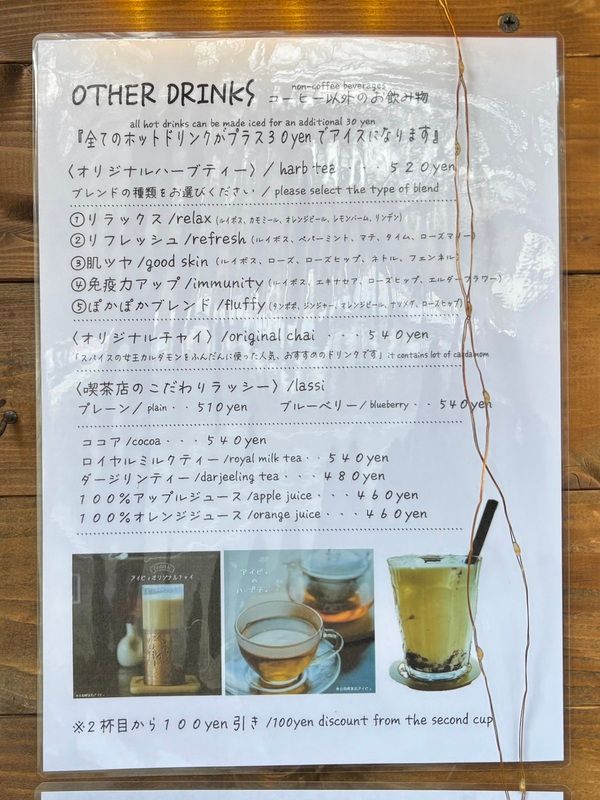 OTHER DRINKS
non-coffee beverages
コーヒー以外のお飲み物
all hot drinks can be made iced for an additional 30 yen
『全てのホットドリンクがプラス30yenでアイスになります』
〈オリジナルハーブティー〉/ harb tea ・・・520yen
ブレンドの種類をお選びください / please select the type of blend
①リラックス/relax (ルイボス、カモミール、オレンジピール、レモンバーム、リンデン)
②リフレッシュ/refresh (ルイボス、ペパーミント、マテ、タイム、ローズマリー)
③肌ツヤ/good skin (ルイボス、ローズ、ローズヒップ、ネトル、フェンネル)
④免疫力アップ/immunity (ルイボス、エキナセア、ローズヒップ、エルダーフラワー)
⑤ぽかぽかブレンド/fluffy (タンポポ、ジンジャー、オレンジピール、ナツメグ、ローズヒップ)
〈オリジナルチャイ〉/original chai ・・・540yen
「スパイスの女王カルダモンをふんだんに使った人気、おすすめのドリンクです」it contains lot of cardamom
〈喫茶店のこだわりラッシー〉/lassi
プレーン/ plain・・510yen ブルーベリー/ blueberry・・540yen
ココア/cocoa・・・540yen
ロイヤルミルクティー/royal milk tea・・540yen
ダージリンティー/darjeeling tea・・・480yen
100%アップルジュース/apple juice・・・460yen
100%オレンジジュース/orange juice・・・460yen
アイビィオリジナルチャイ
アイビィ
の
ハーブティ
※2杯目から100yen引き/100yen discount from the second cup